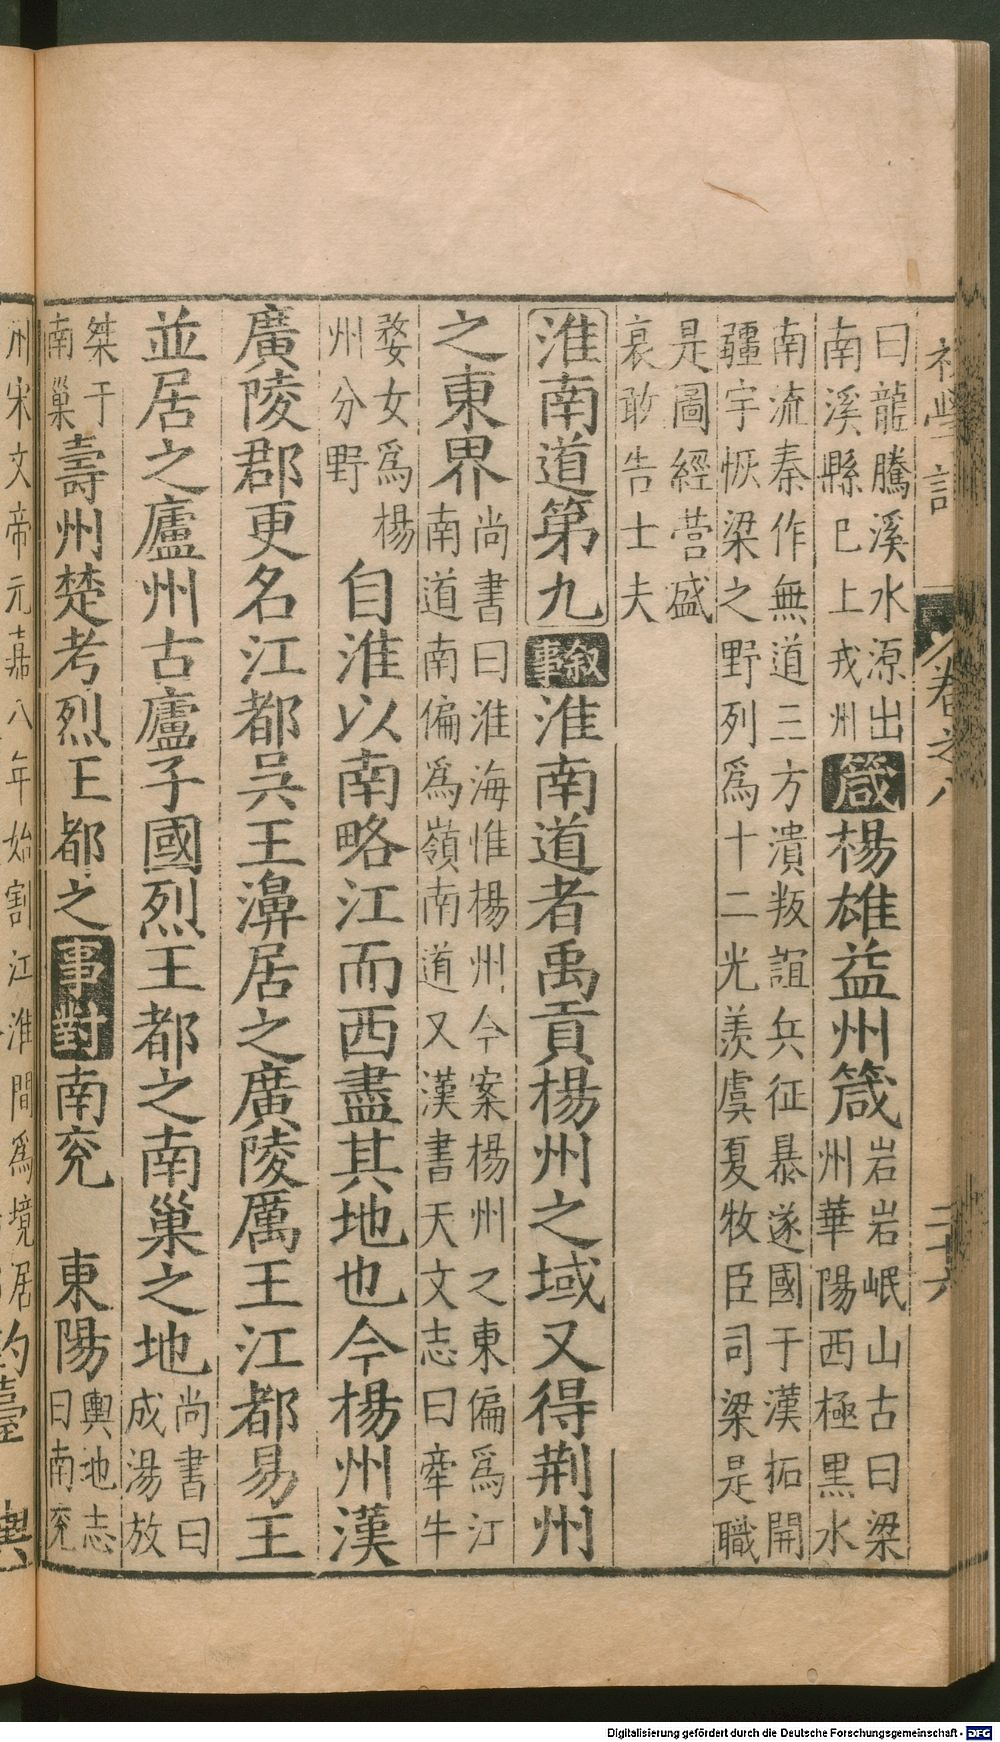 初學記 卷之八 二十六
曰龍騰溪水源出
南溪縣巳上戎州
箴楊雄益州箴
岩岩岷山古曰梁
州華陽西極黑水
南流秦作無道三方潰叛誼兵征暴遂國于漢拓開
疆宇恢梁之野列爲十二光羨虞夏牧臣司梁是職
是圖經營盛
哀敢告士夫
淮南道第九 叙事淮南道者禹貢楊州之域又得荆州
之東界
尚書曰淮海惟楊州今案楊州之東偏爲江
南道南偏爲嶺南道又漢書天文志曰牽牛
婺女爲楊
州分野
自淮以南略江而西盡其地也今楊州漢
廣陵郡更名江都吳王濞居之廣陵厲王江都易王
並居之廬州古廬子國烈王都之南巢之地
尚書曰
成湯放
桀于
南巢
壽州楚考烈王都之事對南兖 東陽
輿地志
曰南兖
州宋文帝元嘉八年始割江淮間爲境居
Digitalisierung gefördert durch die Deutsche Forschungsgemeinschaft - DFG